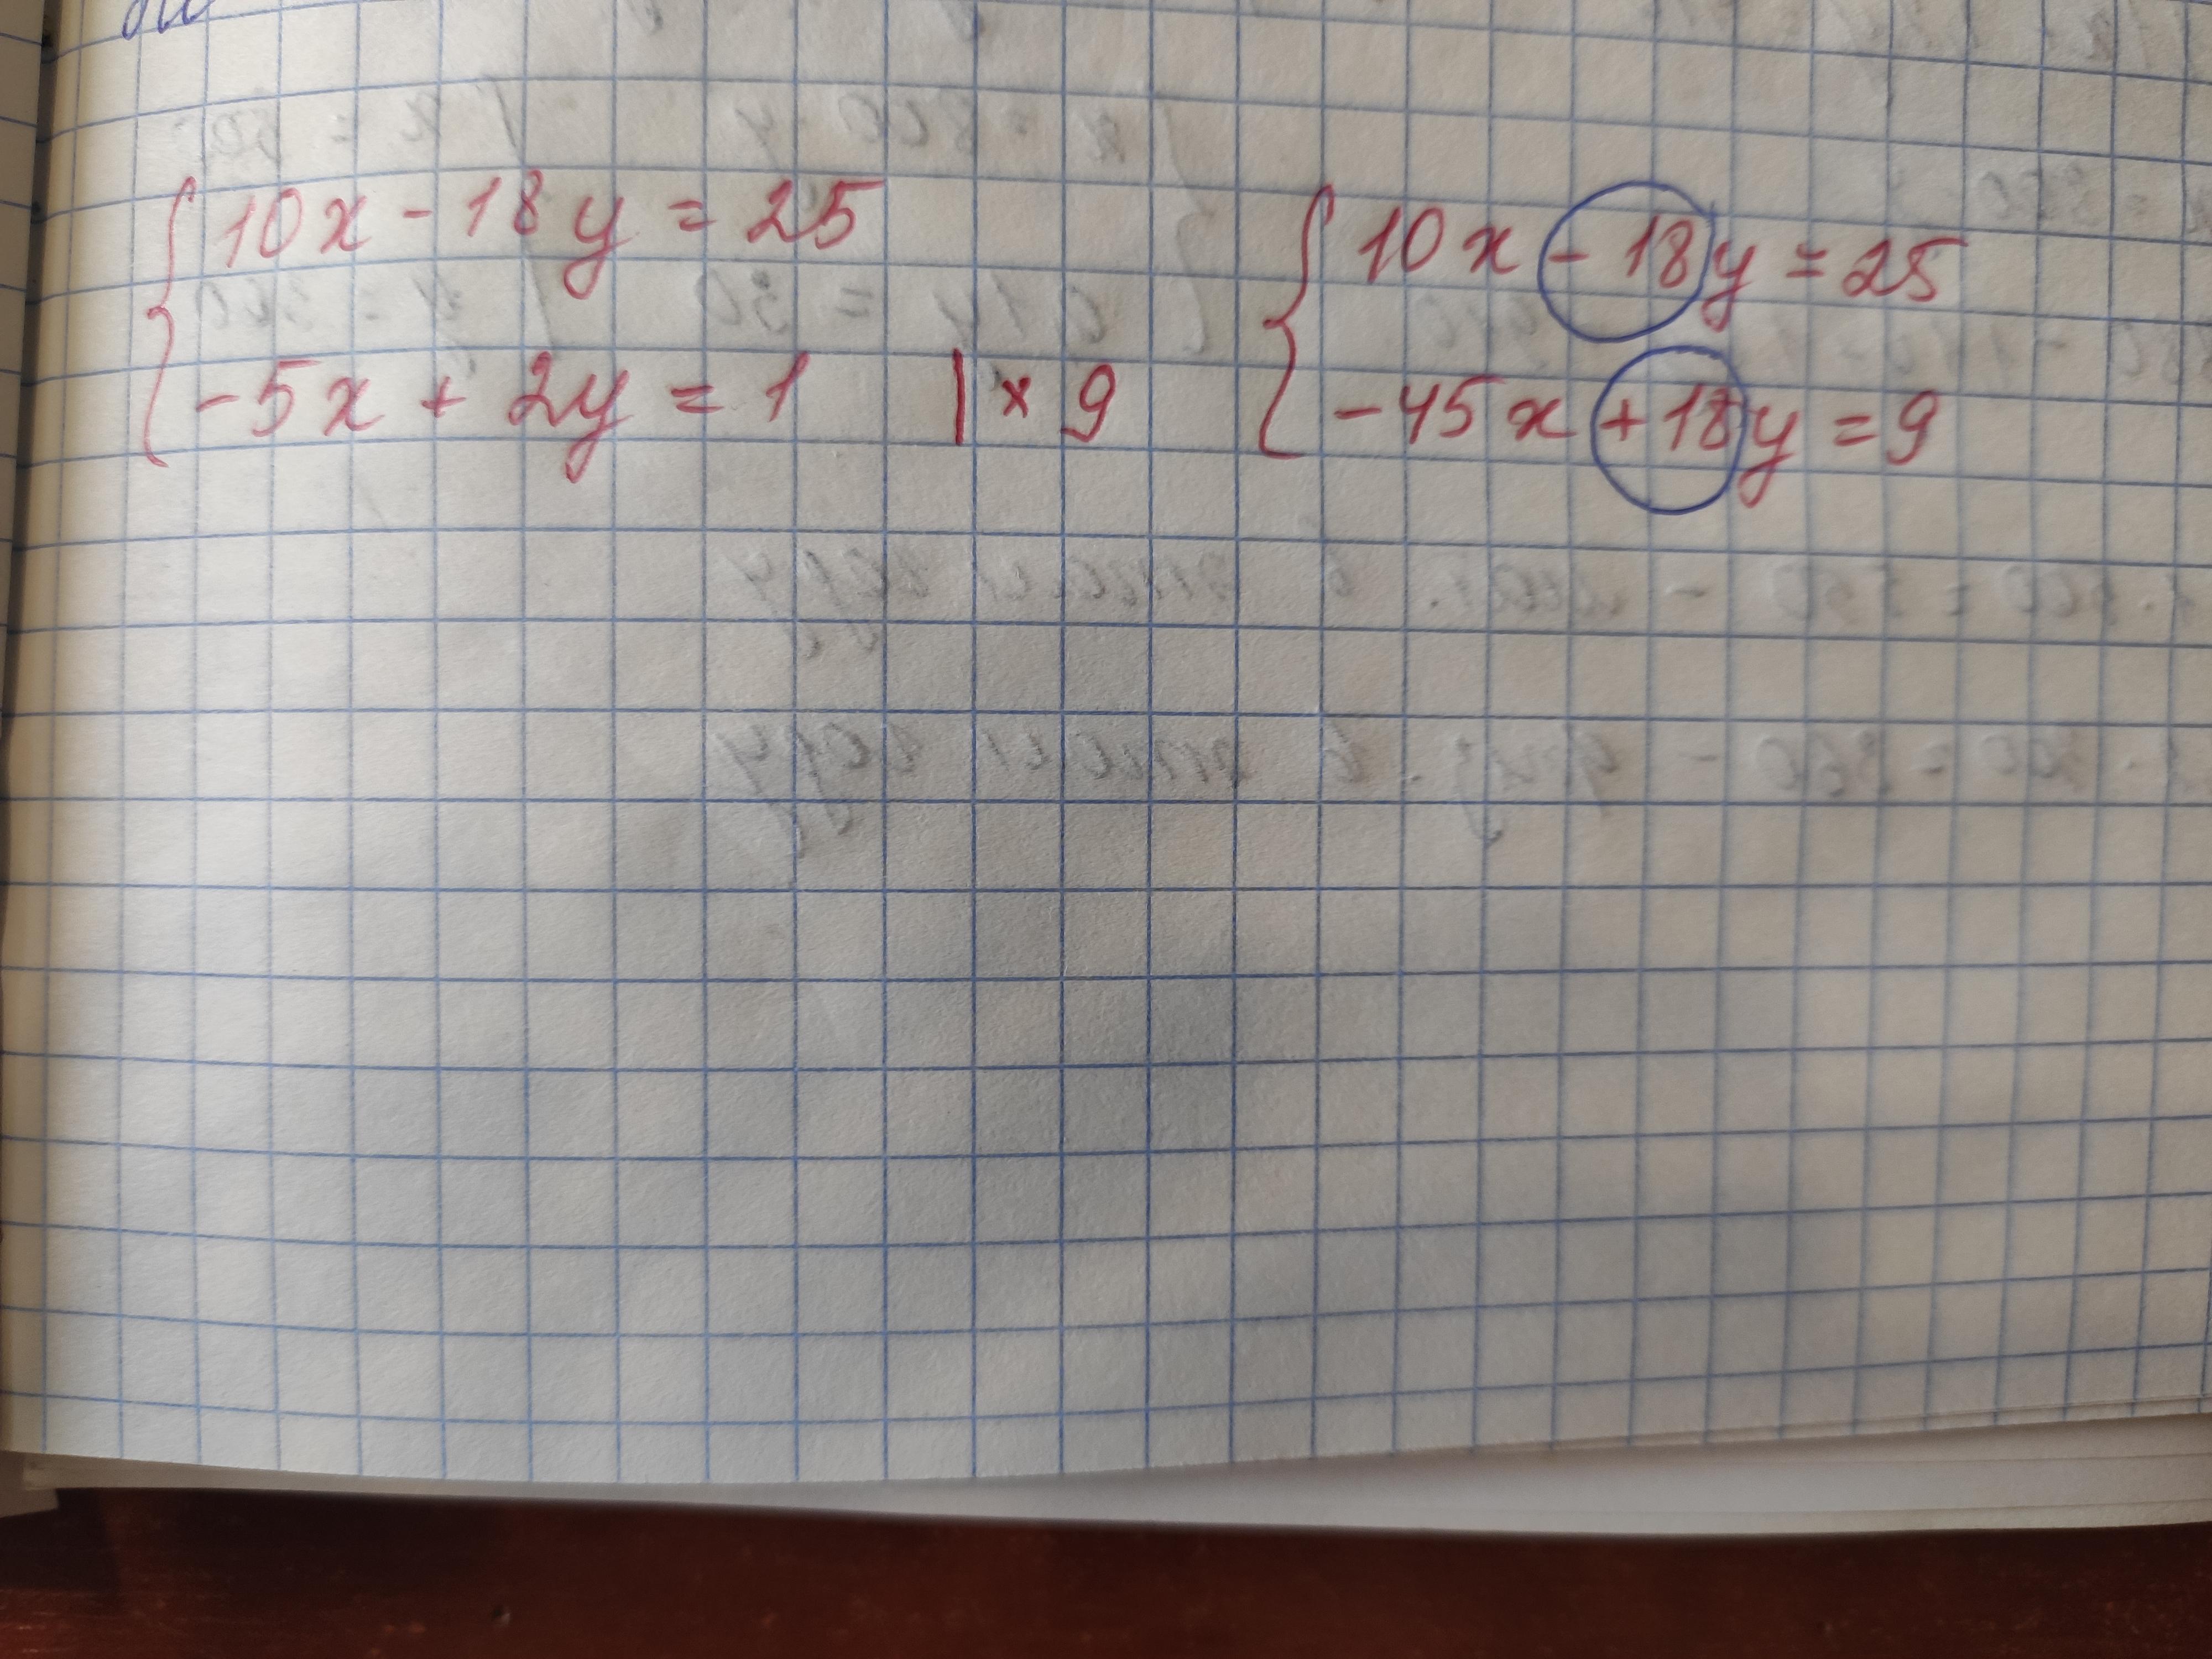 10x - 18y = 25
-5x + 2y = 1 | × 9
10x - 18y = 25
-45x + 18y = 9